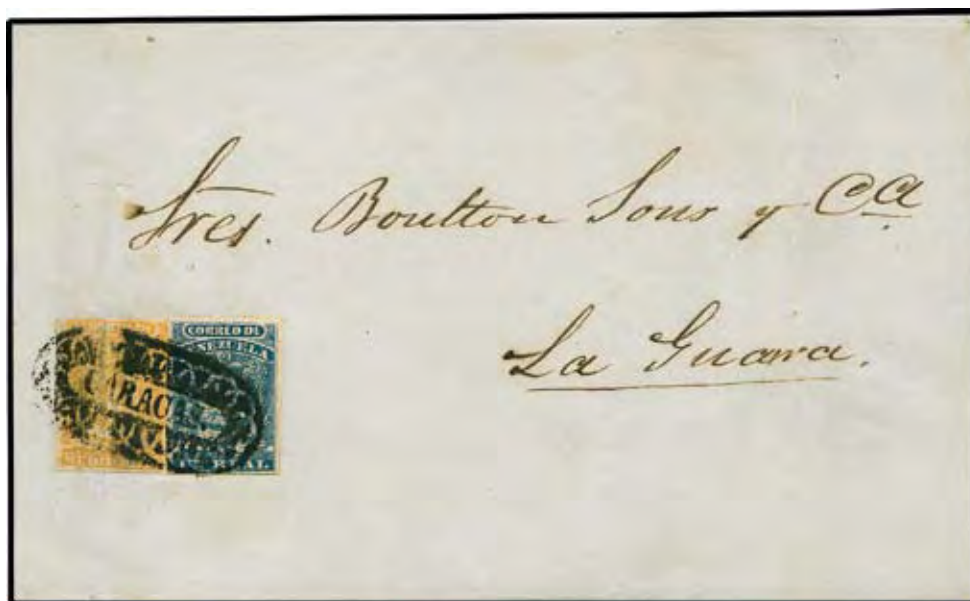 Sres. Boulton Sons y Ca
La Guaira.
CORREO DE
VENEZUELA
CARACAS
REAL